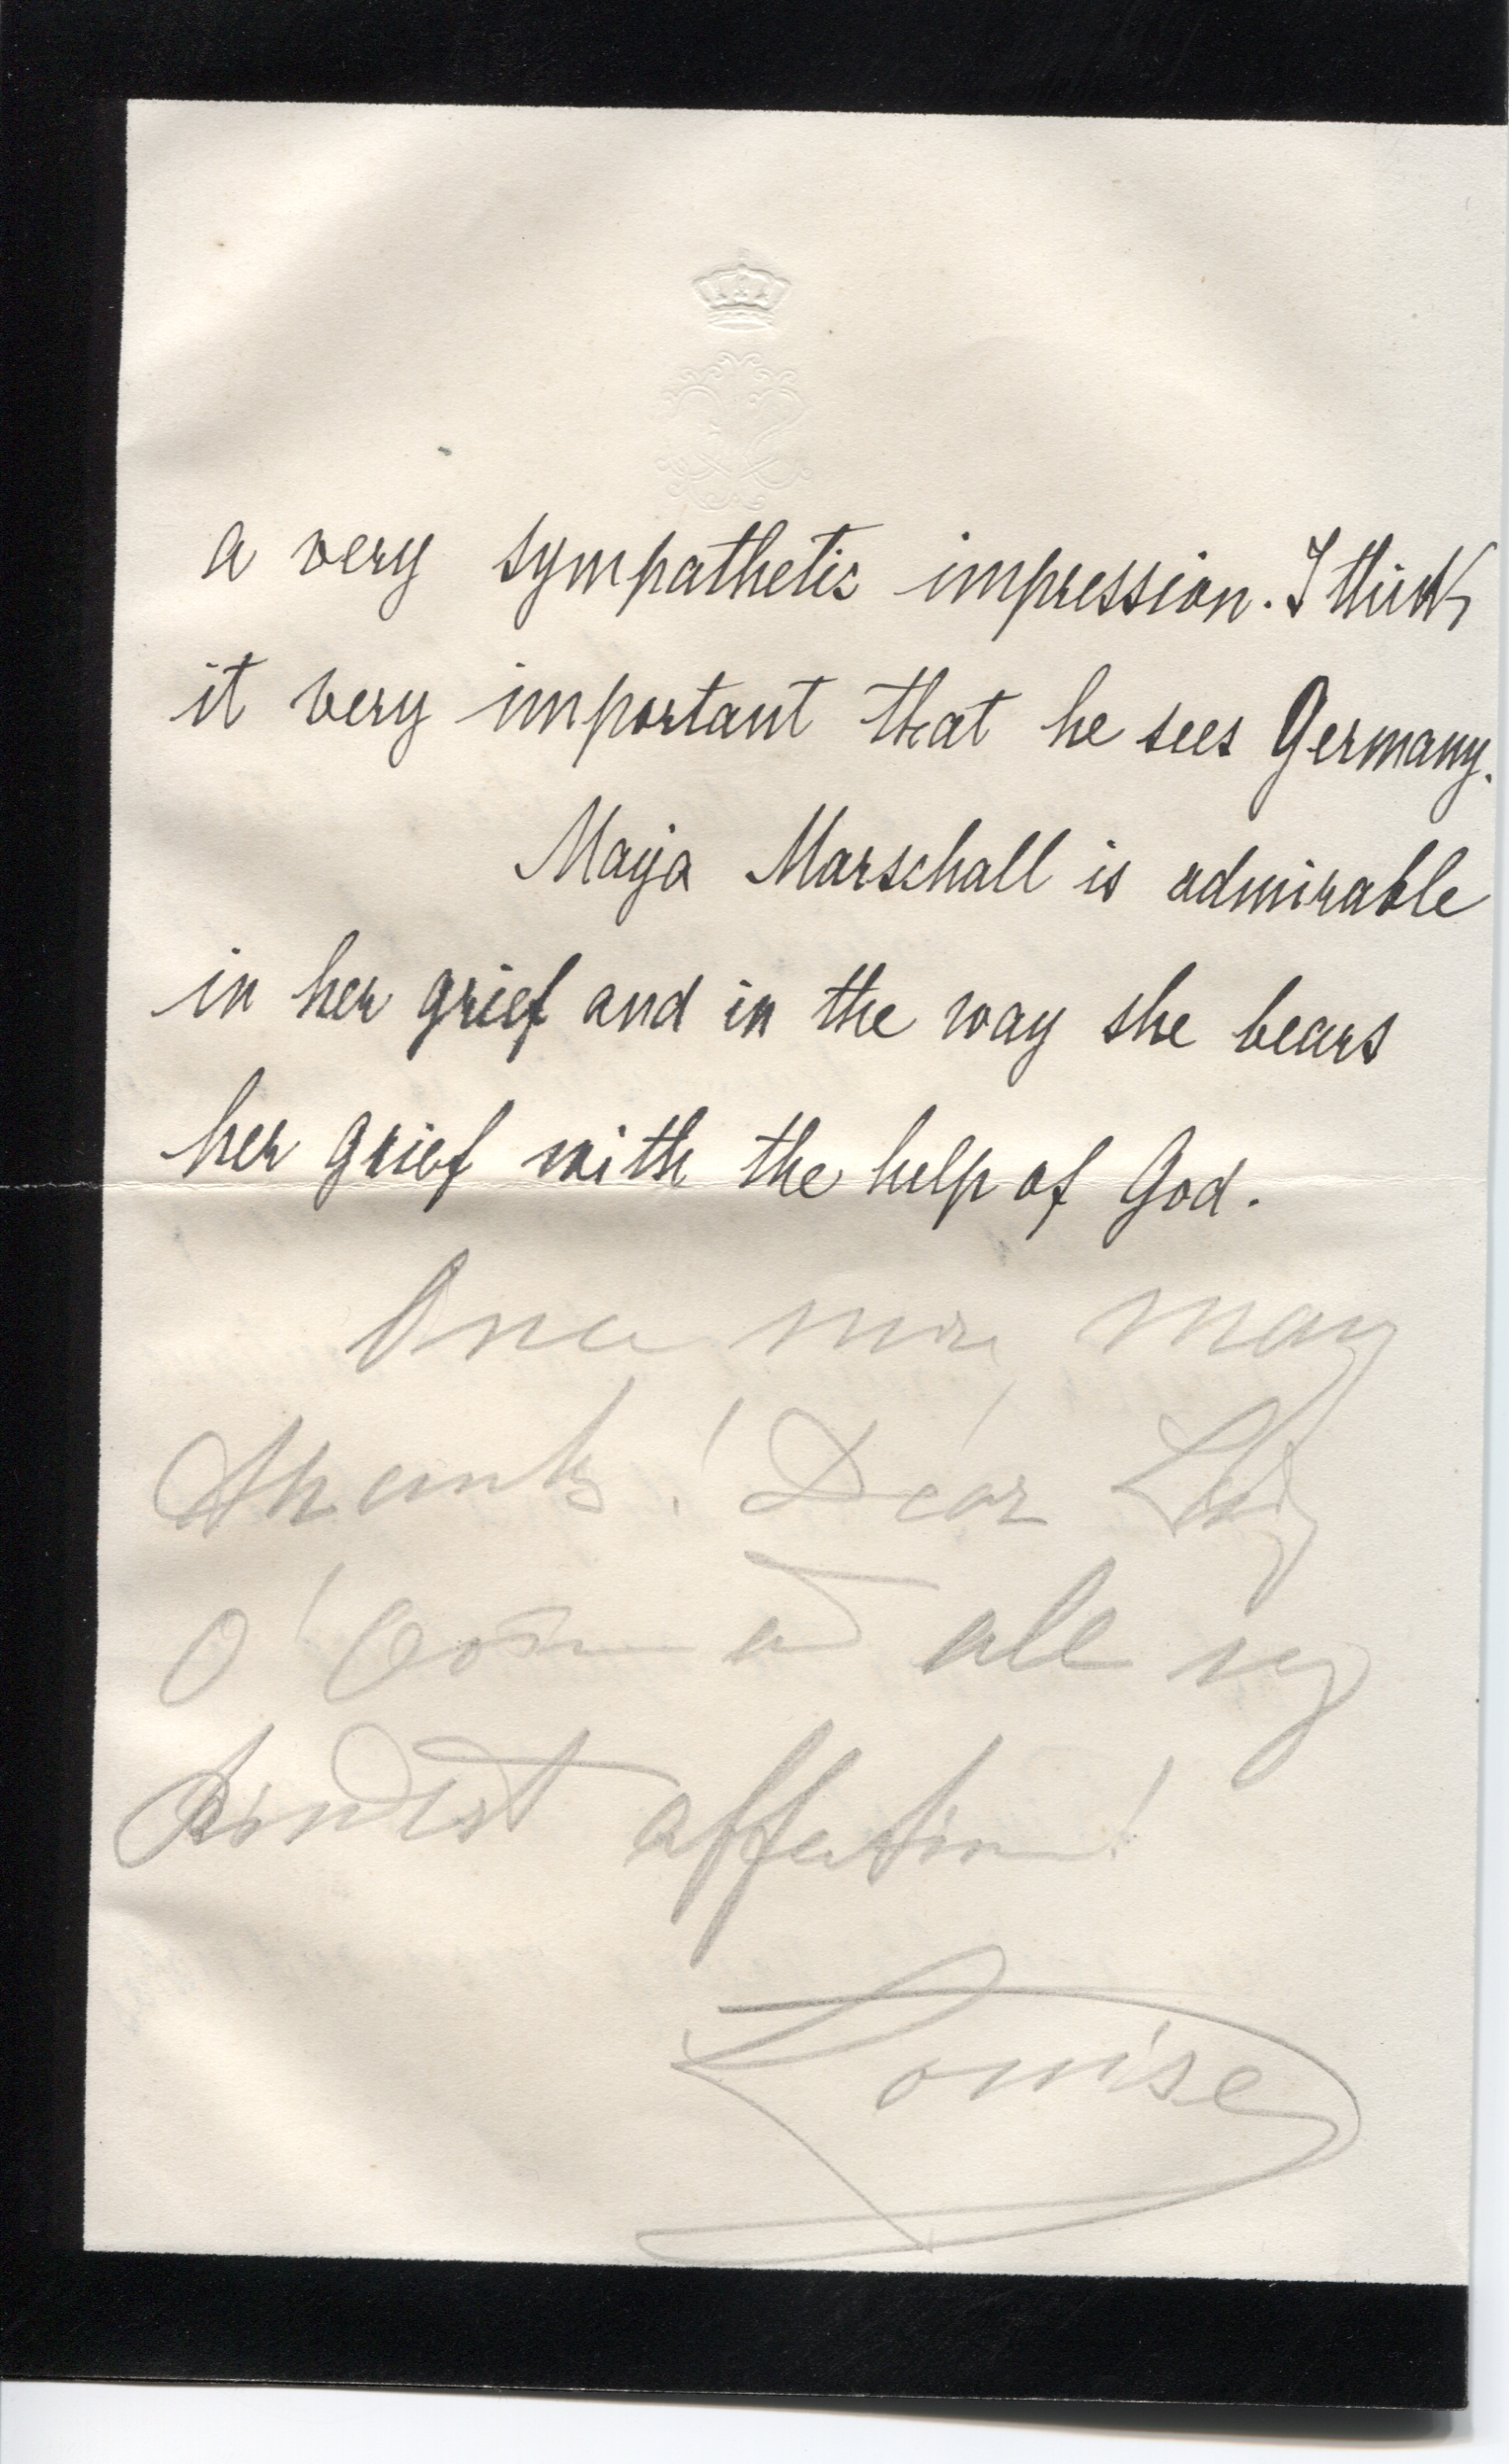 a very sympathetic impression. I think
it very important that he sees Germany.
Maija Marschall is admirable
in her grief and in the way she bears
her grief with the help of God.
Once more many
thanks! Dear Lady
O'Conor and all my
kindest affection!
Louise